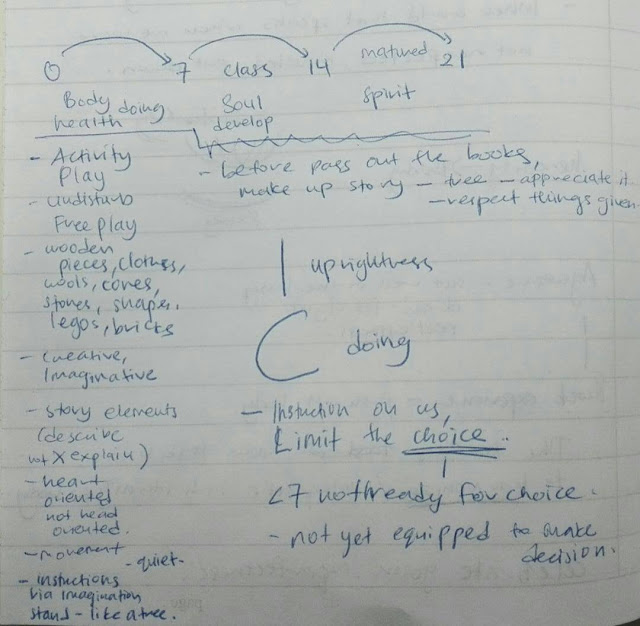 0 7 class 14 matured 21
Body doing
health
Soul
develop
spirit
- Activity
Play
- undisturb
Free play
- wooden
pieces, clothes,
wools, cones,
stones, shapes.
legos, bricks
- creative,
Imaginative
- story elements
(describe
not X explain)
- heart
oriented
not head
oriented.
- movement
- quiet-
- instuctions
via imagination
stand - like a tree.
- before pass out the books,
make up story - tree - appreciate it.
- respect things given
uprightness
doing
- Instuction on us,
Limit the choice..
<7 not ready for choice.
- not yet equipped to make
decision.